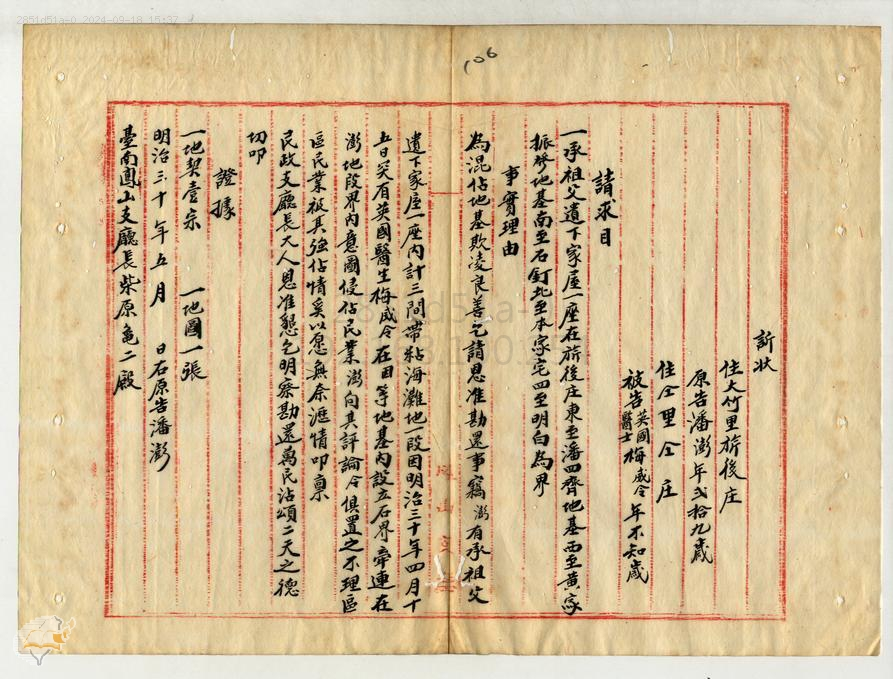 2851d51a-0 2024-09-18 15:37
106
訴狀
住大竹里旂後庄
原告潘澎年弍拾九歲
住仝里仝庄
被告英國醫士梅威令年不知歲
請求目
一承祖父遺下家屋一座在旂後庄東至潘四齊地基西至黃家
振聲地基南至石釘北至本家宅四至明白為界
事實理由
為混佔地基欺凌良善乞請恩准勘還事竊澎有承祖父
遺下家屋一座內計三間帶粘海灘地一段因明治三十年四月十
五日突有英國醫生梅威令在因等地基內設立石界牽連在
澎地段界內意圖侵佔民業澎向其評論令俱置之不理區
區民業被其強佔情奚以愿無奈瀝情叩稟
民政支廳長大人恩准懇乞明察勘還萬民沾頌二天之德
切叩
證據
一地契壹宗 一地圖一張
明治三十年五月 日右原告潘澎
臺南鳳山支廳長柴原龜二殿